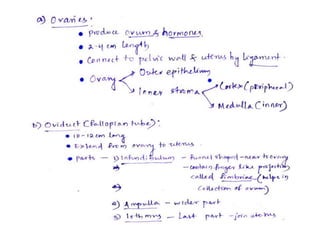 a) Ovaries :
• Produce ovum & hormones
• 2-4 cm length
• Connect to pelvic wall & uterus by ligament.
• Ovary → Outer epithelium
→ Inner stroma → Cortex (peripheral)
→ Medulla (inner)
b) Oviduct (fallopian tube) :
• 10-12 cm long
• Extend from ovary to uterus
• Parts - 1) Infundibulum - funnel shaped - near to ovary
- contain finger like projection
called fimbriae (helps in
collection of ovum)
2) Ampulla - wider part
3) Isthmus - last part - join uterus